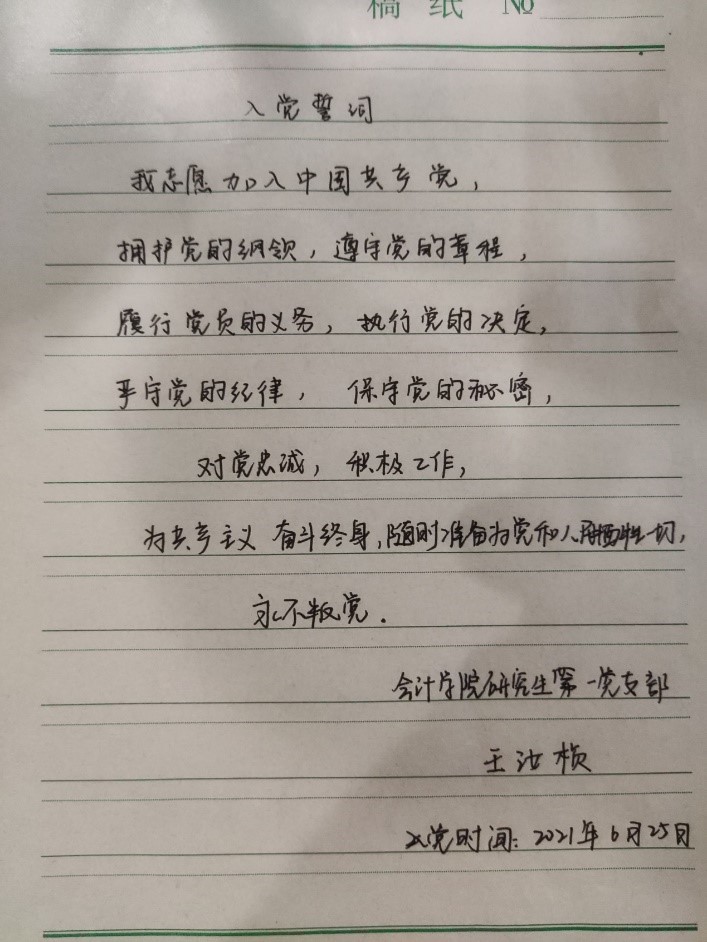 稿纸 №
入党誓词
我志愿加入中国共产党，
拥护党的纲领，遵守党的章程，
履行党员的义务，执行党的决定，
严守党的纪律，保守党的秘密，
对党忠诚，积极工作，
为共产主义奋斗终身，随时准备为党和人民牺牲一切，
永不叛党．
会计学院研究生第一党支部
王汝桢
入党时间：2021年6月25日